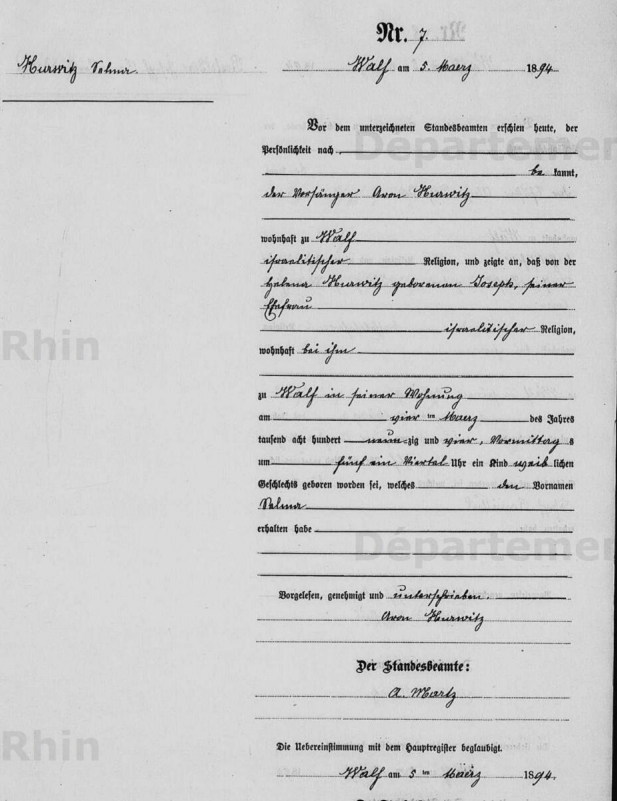 Nr. 7.
Hurwitz Selma.
Walf am 5. Maerz 1894
Vor dem unterzeichneten Standesbeamten erschien heute, der
Persönlichkeit nach
be kannt,
der Vorsänger Aron Hurwitz
wohnhaft zu Walf
israelitischer Religion, und zeigte an, daß von der
Helena Hurwitz geborenen Joseph, seiner
Ehefrau
israelitischer Religion,
wohnhaft bei ihm
zu Walf in seiner Wohnung
am vier ten Maerz des Jahres
tausend acht hundert neun zig und vier, Vormittag s
um fünf ein Viertel Uhr ein Kind weib lichen
Geschlechts geboren worden sei, welches den Vornamen
Selma
erhalten habe
Vorgelesen, genehmigt und unterschrieben.
Aron Hurwitz
Der Standesbeamte:
A. Martz
Die Uebereinstimmung mit dem Hauptregister beglaubigt.
Walf am 5 ten Maerz 1894.
Départemen
Rhin
Départemen
Rhin